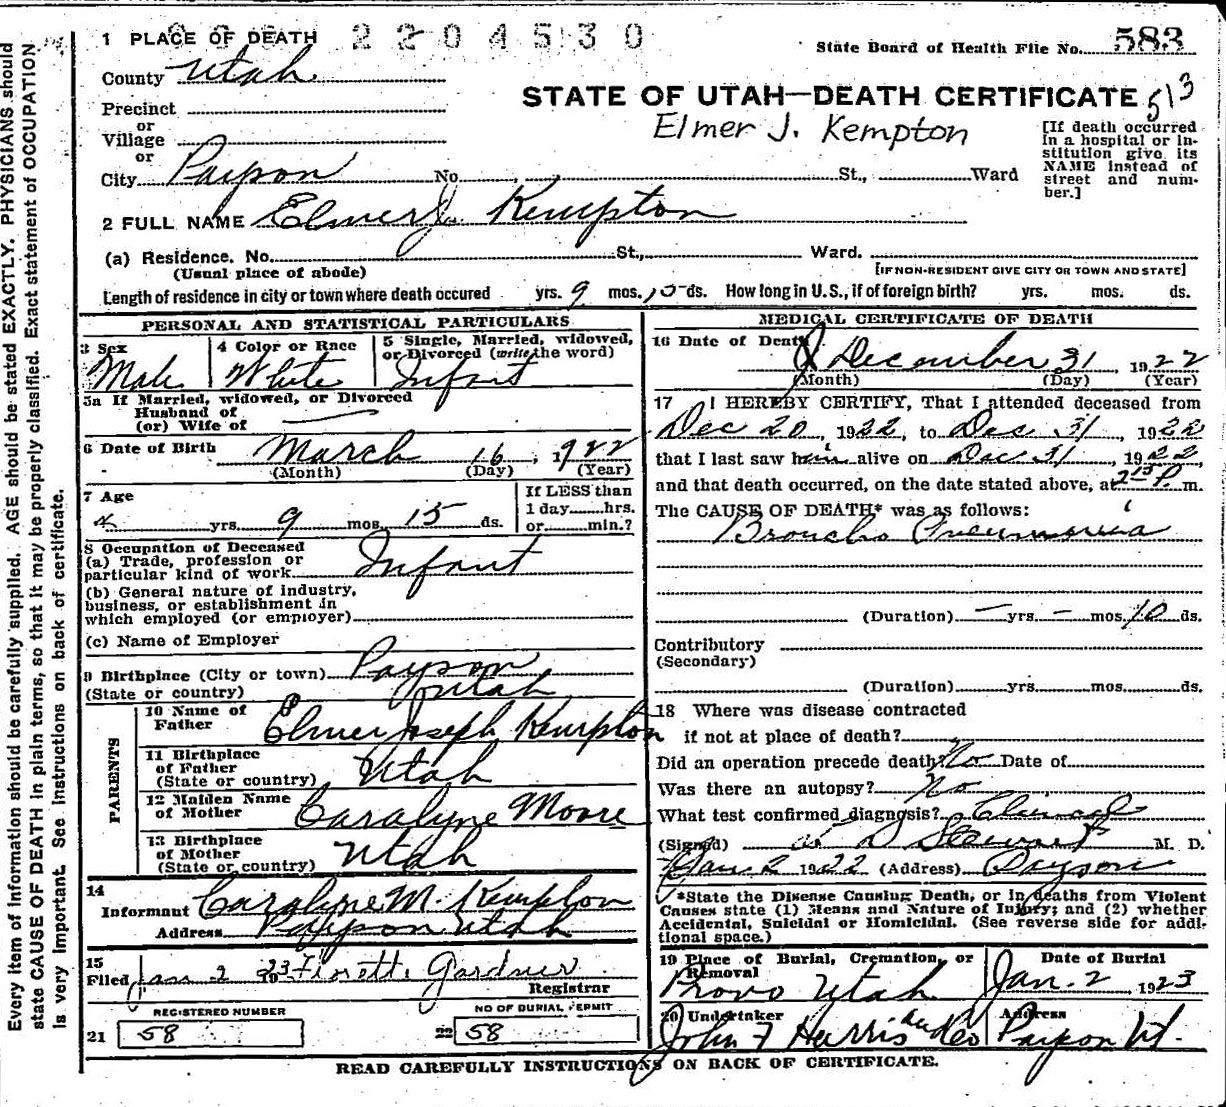 2204530
1 PLACE OF DEATH
State Board of Health File No. 583
County Utah
STATE OF UTAH—DEATH CERTIFICATE 513
Precinct
Elmer J. Kempton
or
Village
or
City Payson No. , St., Ward
[If death occurred
in a hospital or in-
stitution give its
NAME instead of
street and num-
ber.]
2 FULL NAME Elmer J. Kempton
(a) Residence. No. St., Ward.
(Usual place of abode)
[IF NON-RESIDENT GIVE CITY OR TOWN AND STATE]
Length of residence in city or town where death occured yrs. 9 mos. 15 ds. How long in U.S., if of foreign birth? yrs. mos. ds.
PERSONAL AND STATISTICAL PARTICULARS
3 Sex
Male
4 Color or Race
White
5 Single, Married, widowed,
or Divorced (write the word)
Infant
5a If Married, widowed, or Divorced
Husband of
(or) Wife of
6 Date of Birth March 16, 1922
(Month) (Day) (Year)
7 Age
yrs. 9 mos. 15 ds.
If LESS than
1 day hrs.
or min.?
8 Occupation of Deceased
(a) Trade, profession or
particular kind of work Infant
(b) General nature of industry,
business, or establishment in
which employed (or employer)
(c) Name of Employer
9 Birthplace (City or town) Payson
(State or country) Utah
PARENTS
10 Name of
Father Elmer Joseph Kempton
11 Birthplace
of Father
(State or country) Utah
12 Maiden Name
of Mother Caralyne Moore
13 Birthplace
of Mother
(State or country) Utah
14
Informant Caralyne M. Kempton
Address Payson Utah
15
Filed Jan 2 1923 Gardner
Registrar
REGISTERED NUMBER
21 58
NO OF BURIAL PERMIT
22 58
MEDICAL CERTIFICATE OF DEATH
16 Date of Death
December 31 1922
(Month) (Day) (Year)
17 I HEREBY CERTIFY, That I attended deceased from
Dec 20, 1922, to Dec 31, 1922
that I last saw him alive on Dec 31, 1922,
and that death occurred, on the date stated above, at 2 15 P. m.
The CAUSE OF DEATH* was as follows:
Broncho Pneumonia
(Duration) — yrs. — mos. 10 ds.
Contributory
(Secondary)
(Duration) yrs. mos. ds.
18 Where was disease contracted
if not at place of death?
Did an operation precede death? No Date of
Was there an autopsy? No
What test confirmed diagnosis? Clinical
(Signed) D Stewart M. D.
Jan. 2 1922 (Address) Payson
*State the Disease Causing Death, or in deaths from Violent
Causes state (1) Means and Nature of Injury; and (2) whether
Accidental, Suicidal or Homicidal. (See reverse side for addi-
tional space.)
19 Place of Burial, Cremation, or
Removal
Provo Utah
Date of Burial
Jan. 2, 1923
20 Undertaker
John F Harris and Co
Address
Payson Ut.
READ CAREFULLY INSTRUCTIONS ON BACK OF CERTIFICATE.
Every item of information should be carefully supplied. AGE should be stated EXACTLY. PHYSICIANS should
state CAUSE OF DEATH in plain terms, so that it may be properly classified. Exact statement of OCCUPATION
is very important. See instructions on back of certificate.